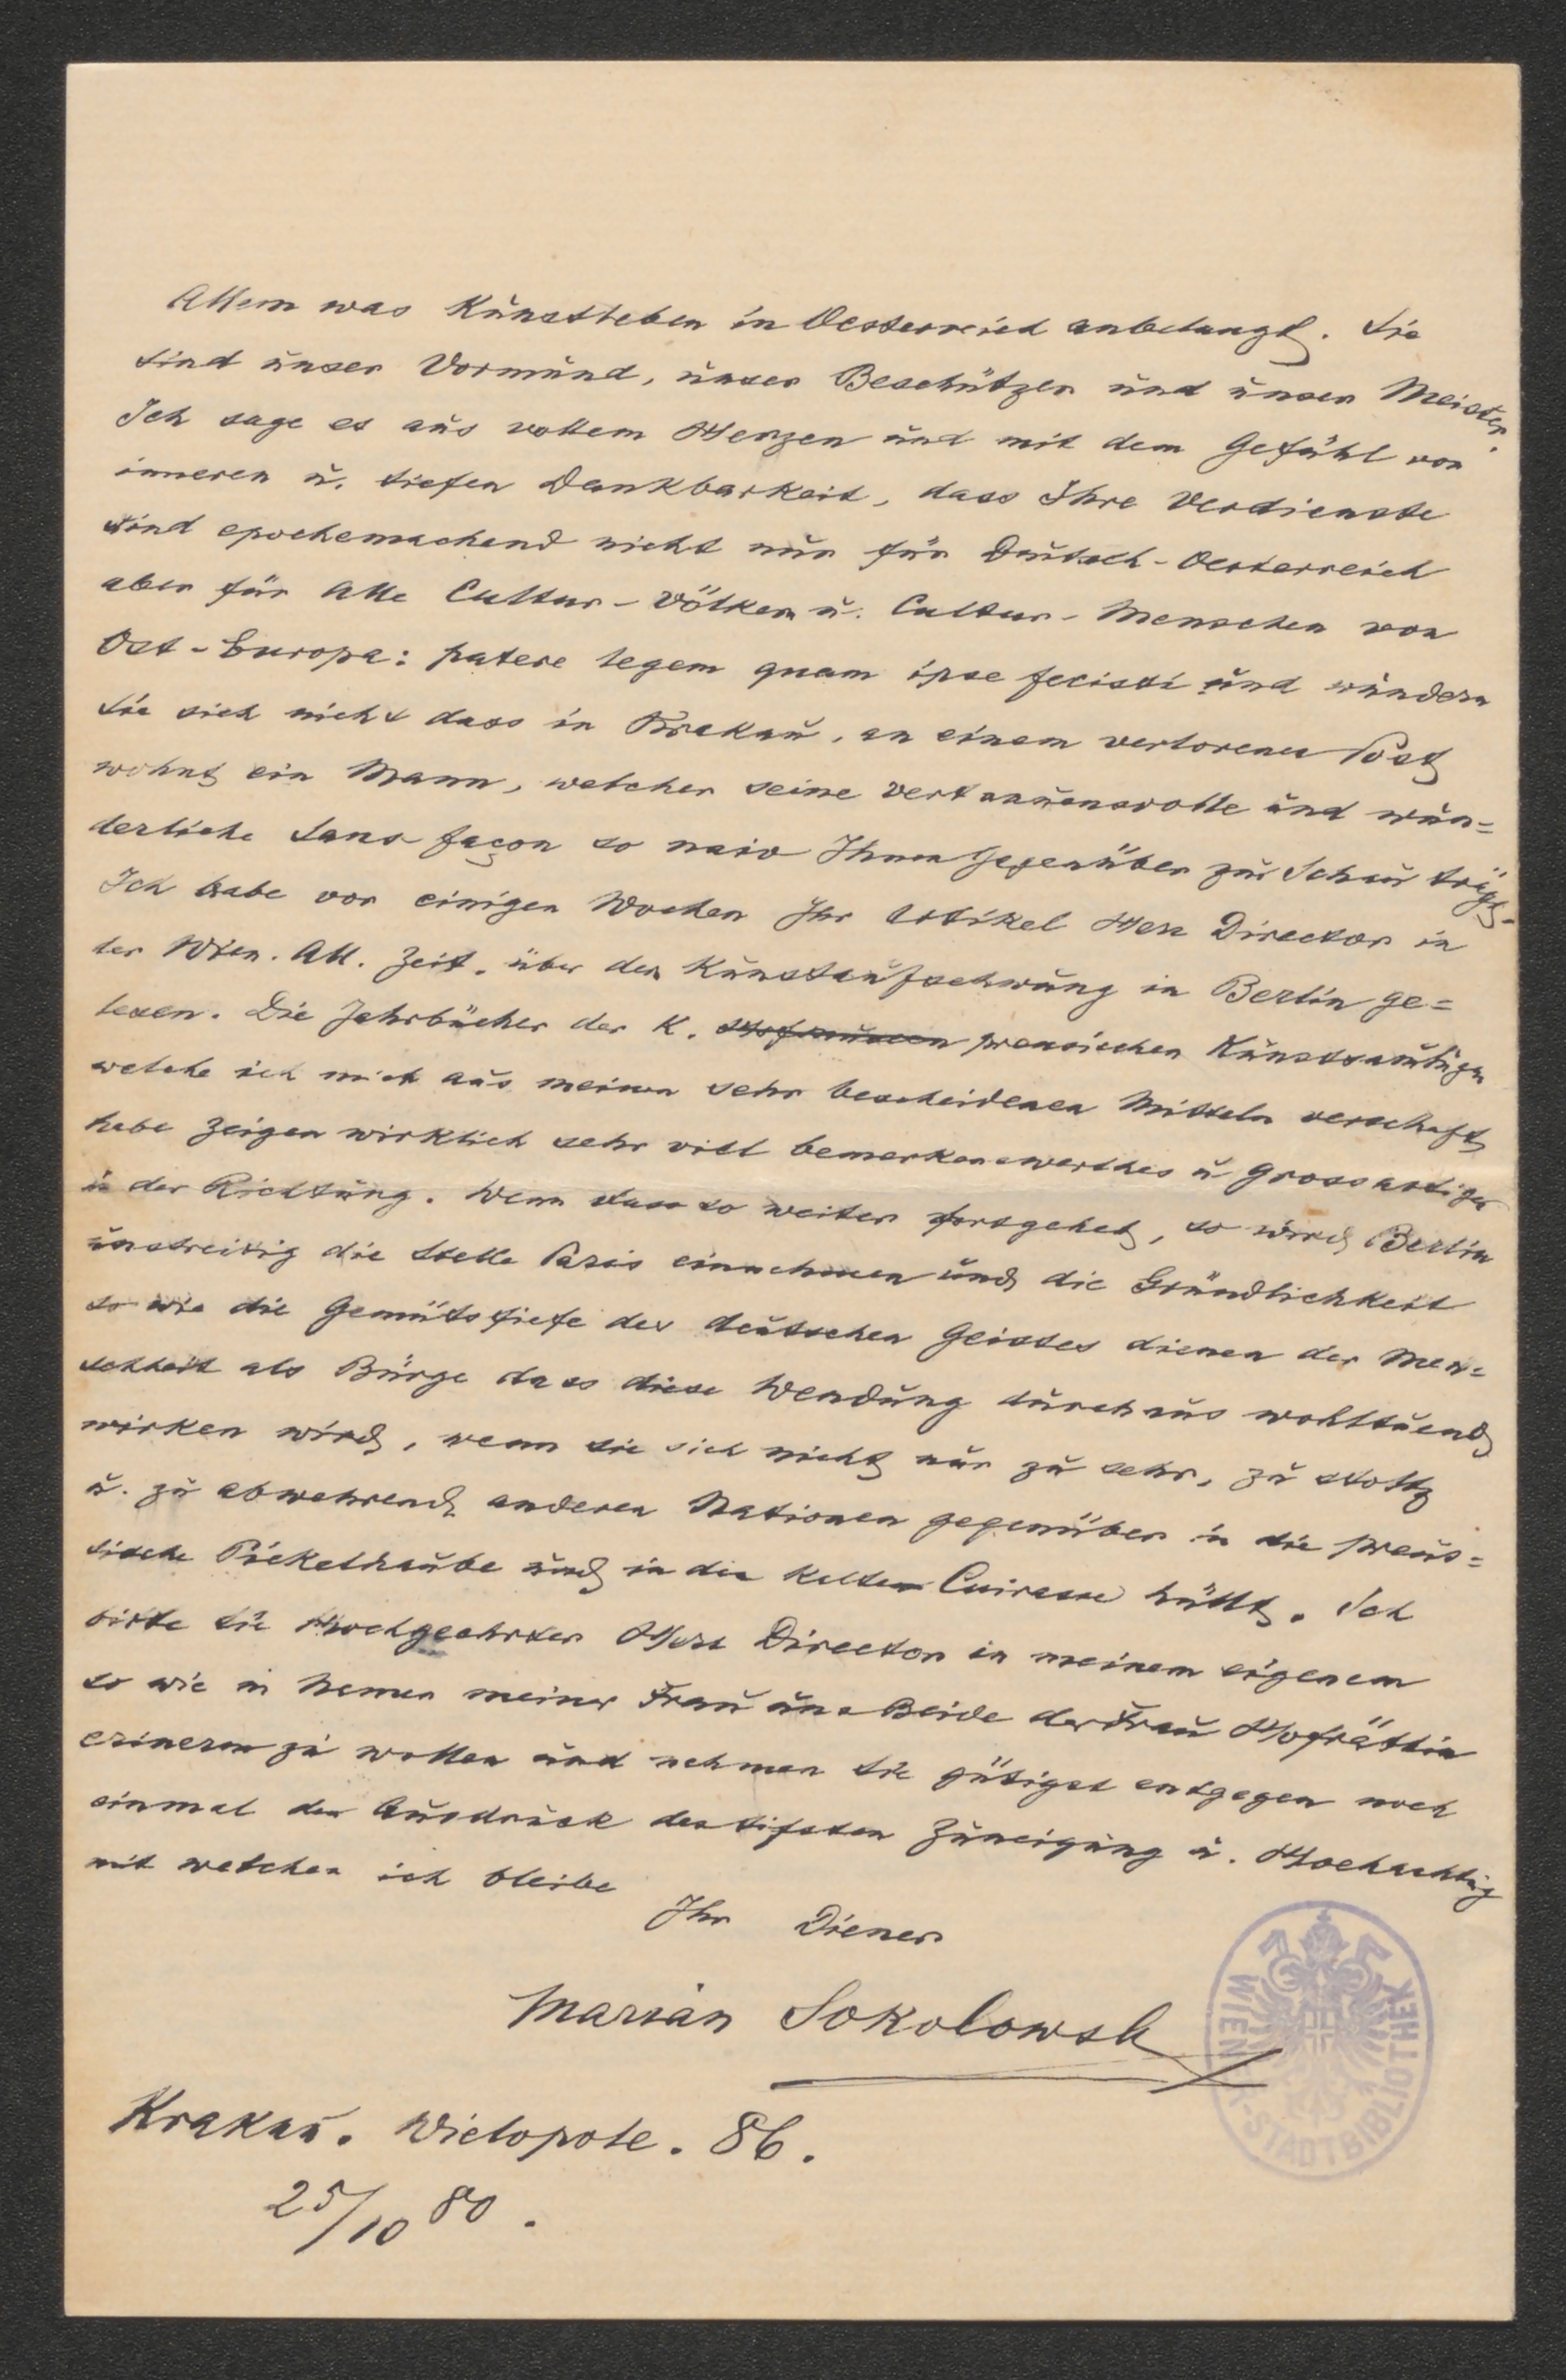 Allem was Kunstleben in Oesterreich anbelangt. Sie
sind unser Vormund, unser Beschützer und unser Meister.
Ich sage es aus vollem Herzen und mit dem Gefühl von
inneren u. tiefen Dankbarkeit, dass Ihre Verdienste
sind epochemachend nicht nur für Deutsch-Oesterreich
aber für Alle Cultur-Völkern u. Cultur-Menschen von
Ost-Europa: patere legem quam ipse fecisti und wundern
Sie sich nicht dass in Krakau, an einem verlorenen Post
wohnt ein Mann, welcher seine vertrauensvolle und wun=
derliche Sans façon so naiv Ihnen gegenüber zur Schau trägt.
Ich habe vor einigen Wochen Ihr Artikel Herr Director in
der Wien. All. Zeit. über den Kunstaufschwung in Berlin ge=
lesen. Die Jahrbücher der K. Hofmuseen preussischen Kunstsamlungen
welche ich mich aus meinen sehr bescheidenen Mitteln verschaft
habe zeigen wirklich sehr vill bemerkenswerthes u grossartiges
in der Richtung. Wenn dass so weiter fortgehet, so wird Berlin
unstreitig die Stelle Paris einnehmen und die Gründlichkeit
so wie die Gemütstiefe des deutschen Geistes dienen der Men=
schheit als Bürge dass diese Wendung durchaus wohltuend
wirken wird, wenn sie sich nicht nur zu sehr, zu stoltz
u. zu abwehrend anderen Nationen gegenüber in die preus=
sische Pickelhaube und in die kalten Cuirasse hüllt. Ich
bitte Sie Hochgeehrter Herr Director in meinem eigenem
so wie in Namen meiner Frau uns Beide der Frau Hofräthin
erinern zu wollen und nehmen Sie gütigst entgegen noch
einmal den Ausdruck des tifsten Zuneigung u. Hochachtung
mit welchen ich bleibe
Ihr Diener
Marian Sokolowski
Krakau. Wielopole. 86.
25/10 80.
WIENER STADTBIBLIOTHEK